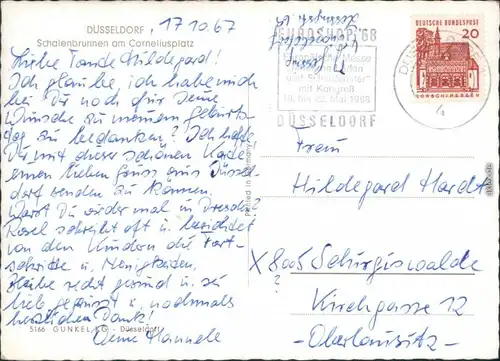 DÜSSELDORF, 17.10.67
Schalenbrunnen am Corneliusplatz
Liebe Tante Hildegard!
Ich glaube ich habe mich
bei Dir noch für Deine
Wünsche zu meinem Geburts-
tag zu bedanken? Ich hoffe
Dir mit dieser schönen Karte
einen lieben Gruss aus Düssel-
dorf senden zu können.
Warst Du wieder mal in Dresden?
Rosel schreibt oft u. berichtet
von den Kindern die Fort-
schritte u. Neuigkeiten.
Bleibe recht gesund u. sei
lieb gegrüsst u. nochmals
herzlichen Dank!
Deine Hannele
5166 GUNKEL KG - Düsseldorf
Printed in Germany
EUROSHOP '68
mit Kongreß
bis 22. Mai 1968
DÜSSELDORF
DEUTSCHE BUNDESPOST
20
LORSCH/HESSEN
Frau
Hildegard Hardt
X 8005 Schirgiswalde
?
Kirchgasse 12
Oberlausitz